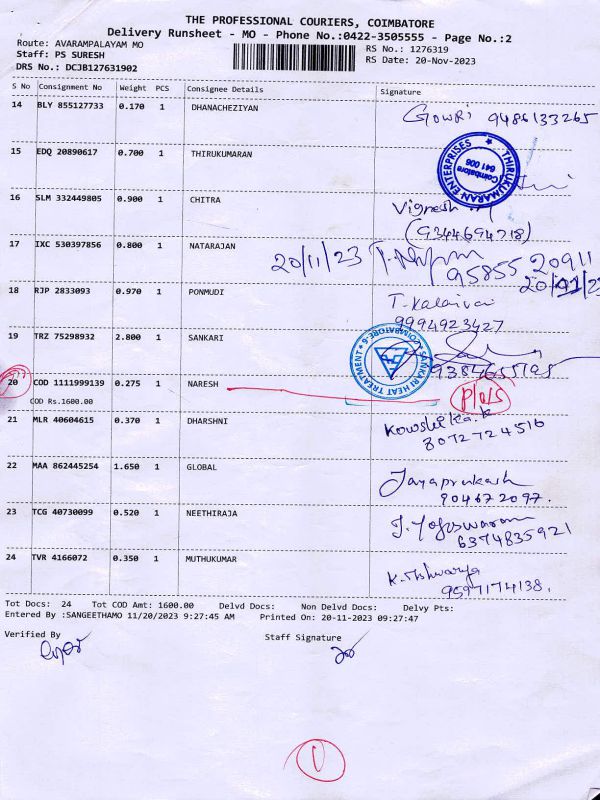 THE PROFESSIONAL COURIERS, COIMBATORE
Delivery Runsheet - MO - Phone No.:0422-3505555 - Page No.:2
Route: AVARAMPALAYAM MO
RS No.: 1276319
Staff: PS SURESH
RS Date: 20-Nov-2023
DRS No.: DCJB127631902
S No Consignment No Weight PCS Consignee Details Signature
14 BLY 855127733 0.170 1 DHANACHEZIYAN
Gowri 9486133265
15 EDQ 20890617 0.700 1 THIRUKUMARAN
THIRUKUMARAN ENTERPRISES
Coimbatore
641 006
16 SLM 332449805 0.900 1 CHITRA
Vignesh
(9344694718)
17 IXC 530397856 0.800 1 NATARAJAN
20/11/23
95855 20911
18 RJP 2833093 0.970 1 PONMUDI
T. Kalaivai
9994923427
19 TRZ 75298932 2.800 1 SANKARI
SANKARI HEAT TREATMENT * COIMBATORE-6 *
9384655198
20 COD 1111999139 0.275 1 NARESH
COD Rs.1600.00
21 MLR 40604615 0.370 1 DHARSHNI
Kowshika.k
8072724516
22 MAA 862445254 1.650 1 GLOBAL
Jayaprakash
904672097.
23 TCG 40730099 0.520 1 NEETHIRAJA
J. Yogeswaran
6374835921
24 TVR 4166072 0.350 1 MUTHUKUMAR
K. Ishwarya
9597174138.
Tot Docs: 24 Tot COD Amt: 1600.00 Delvd Docs: Non Delvd Docs: Delvy Pts:
Entered By :SANGEETHAMO 11/20/2023 9:27:45 AM Printed On: 20-11-2023 09:27:47
Verified By
Staff Signature
1